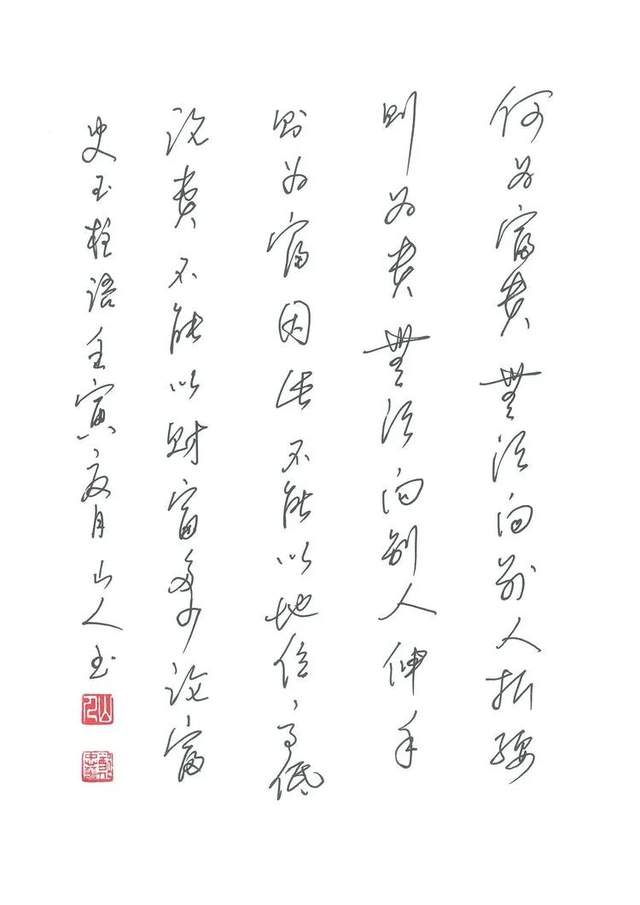 何为富贵無须向别人折腰
则为贵無须向别人伸手
则为富因此不能以地位高低
论贵不能以财富多少论富
史玉柱语壬寅夏月山人书
山人